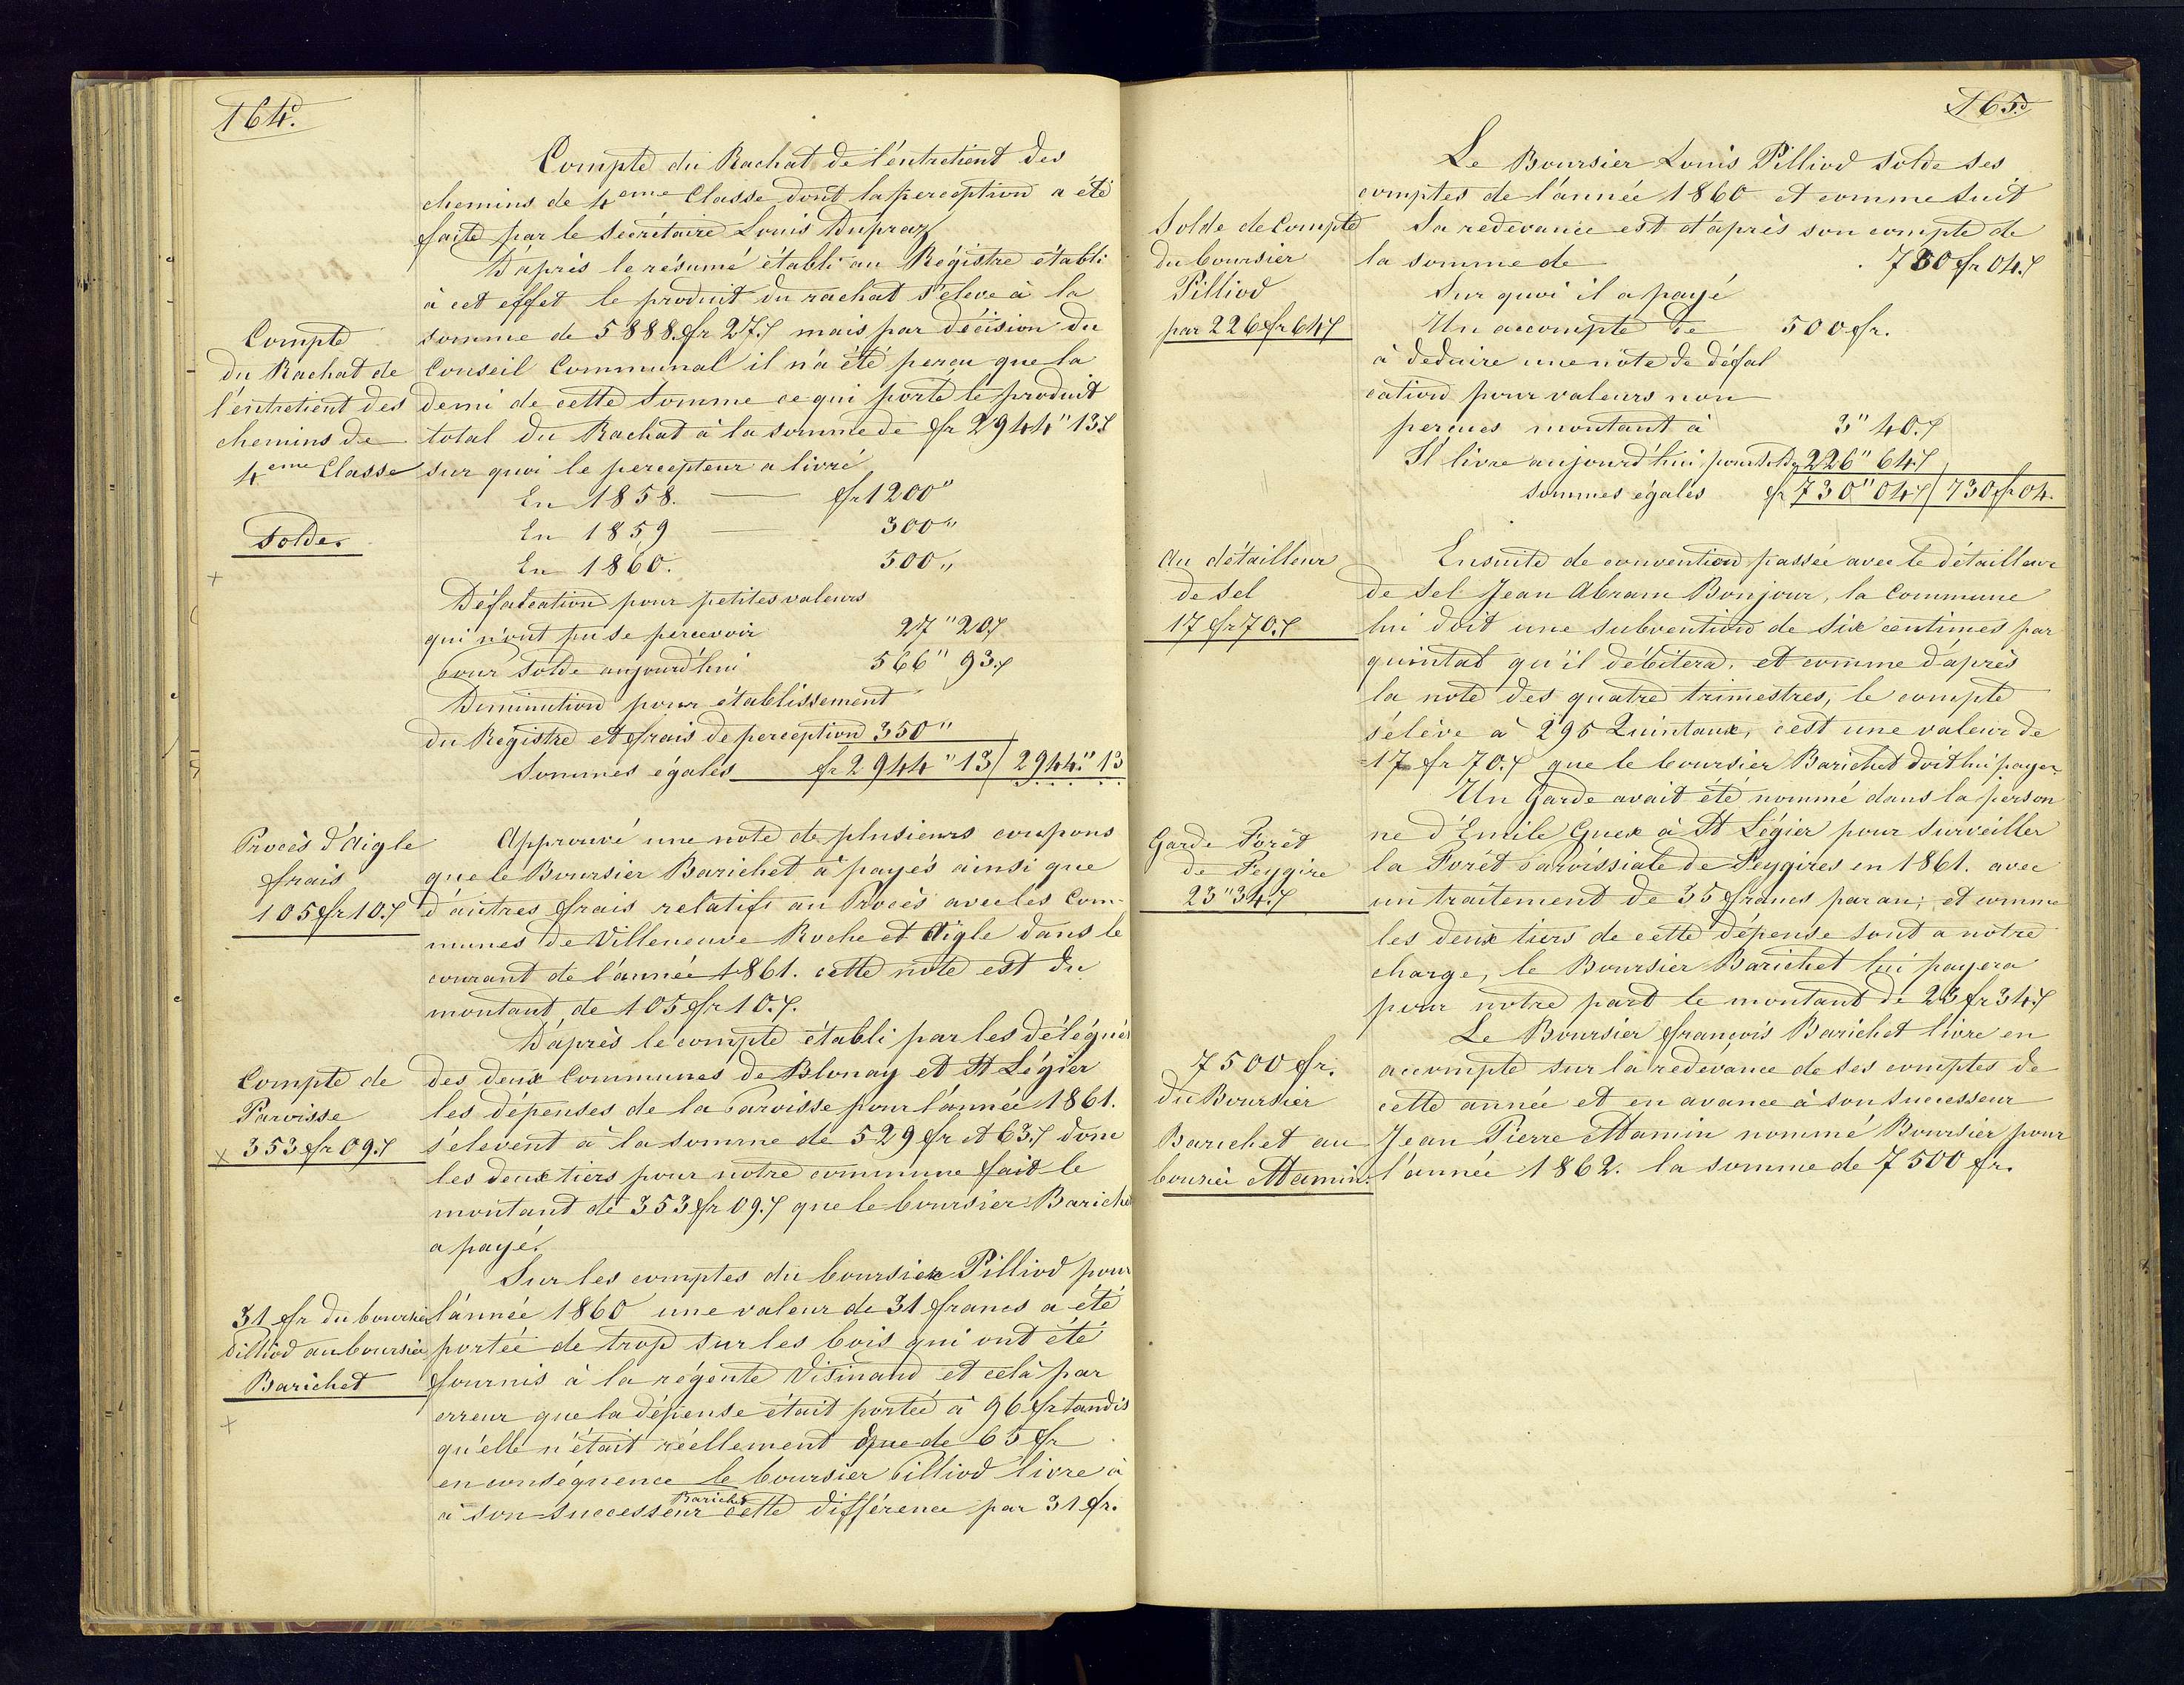 164.
Compte du Rachat de l'entretient des
chemins de 4eme Classe dont la perception a été
faite par le Secrétaire Louis Dupraz
D'après le résumé établi au Régistre établi
à cet effet le produit du rachat s'eleve à la
Compte
du Rachat de
l'entretient des
chemins de
4eme Classe
Solde.
somme de 5888 fr 27 mais par décision du
Conseil Communal il n'a été perçu que la
demi de cette somme ce qui porte le produit
total du Rachat à la somme de fr 2944" 13
sur quoi le percepteur a livré
En 1858. — fr 1200"
En 1859 — 300"
En 1860. 500"
Défalcation pour petites valeurs
qui n'ont pu se percevoir 27" 20
pour solde aujourd'hui 566" 93
Diminution pour établissement
du Registre et frais de perception 350"
Sommes égales fr 2944" 13 / 2944" 13
Procès d'Aigle
frais
105 fr 10
Approuvé une note de plusieurs coupons
que le Boursier Barichet à payés ainsi que
d'autres frais relatifs au Procès avec les Com-
munes de Villeneuve Roche et Aigle dans le
courant de l'année 1861. cette note est du
montant de 105 fr 10.
D'après le compte établi par les délégués
Compte de
Paroisse
353 fr 09
des deux Communes de Blonay et St Légier
les dépenses de la Paroisse pour l'année 1861.
s'elevent à la somme de 529 fr et 63 donc
les deux tiers pour notre commune fait le
montant de 353 fr 09 que le boursier Bariche
a payé.
Sur les comptes du boursier Pilliod pour
31 fr du boursier
Pilliod au boursier
Barichet
l'année 1860 une valeur de 31 francs a été
portée de trop sur les bois qui ont été
fournis à la régente Visinand et celà par
erreur que la dépense était portée à 96 fr tandis
qu'elle n'était réellement que de 65 fr
en conséquence le boursier Pilliod livre à
à son successeur Barichet cette différence par 31 fr.
165
Le Boursier Louis Pilliod solde ses
comptes de l'année 1860 et comme suit
Solde de Compte
du boursier
Pilliod
par 226 fr 64
Sa redevance est d'après son compte de
la somme de 730 fr 04
Sur quoi il a payé
Un accompte de 500 fr.
à deduire une note de défal
cation pour valeurs non
percues montant à 3" 40
Il livre aujourd'hui pour solde 226" 64
sommes égales fr 730" 04 / 730 fr 04.
Au détailleur
de sel
17 fr 70
Ensuite de convention passée avec le détailleur
de sel Jean Abram Bonjour, la Commune
lui doit une subvention de six centimes par
quintal qu'il débitera, et comme d'après
la note des quatre trimestres, le compte
s'élève à 295 Quintaux, c'est une valeur de
17 fr 70 que le boursier Barichet doit lui payer
Un Garde avait été nommé dans la person
Garde Forêt
de Peygire
23" 34
ne d'Emile Guex à St Légier pour surveiller
la Forêt Paroissiale de Peygires en 1861. avec
un traitement de 35 francs par an; et comme
les deux tiers de cette dépense sont a notre
charge, le Boursier Barichet lui payera
pour notre part le montant de 23 fr 34
Le Boursier françois Barichet livre en
7500 fr.
du Boursier
Barichet au
boursier Mamin.
accompte sur la redevance de ses comptes de
cette année et en avance à son successeur
Jean Pierre Mamin nommé Boursier pour
l'année 1862. la somme de 7500 fr.